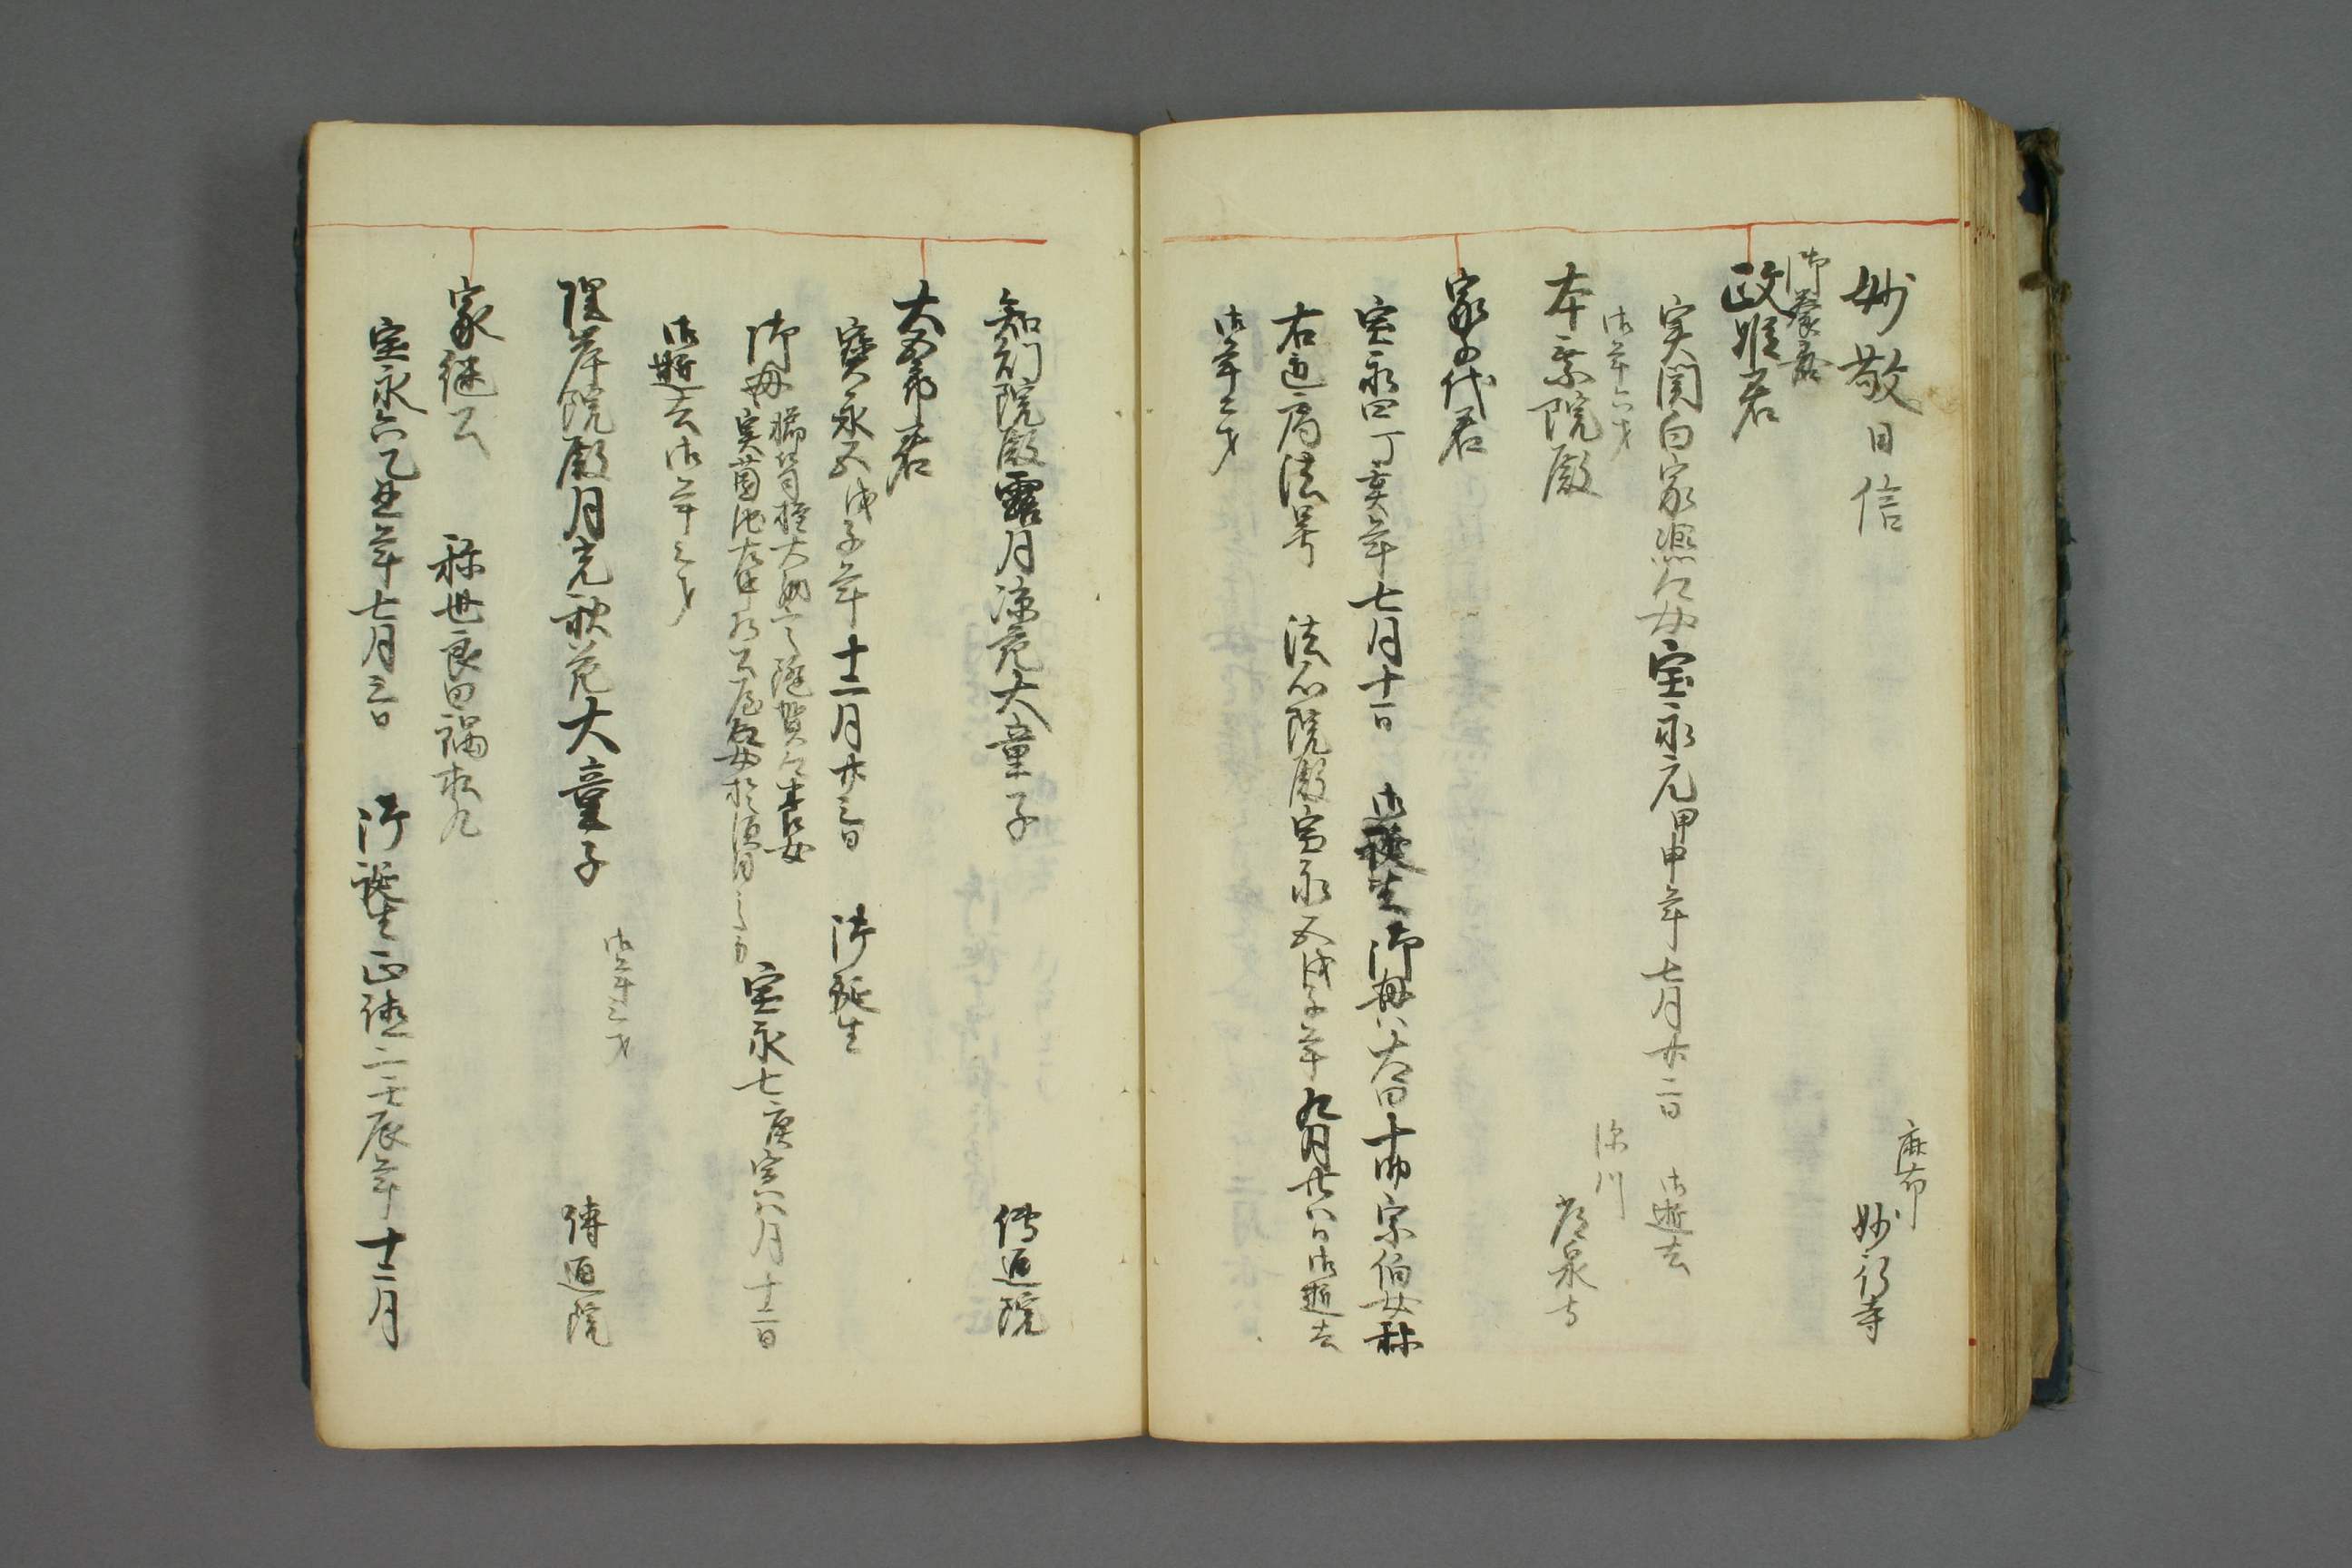 妙敬日信
麻布
妙行寺
御養君
政姫君
実関白家熈公女宝永元甲申年七月廿二日 御逝去
御年六才
深川
本乗院殿
寺
家千代君
宝永四丁亥年七月十一日 御誕生御母ハ太田十郎宗伯女称
右近局法号 法心院殿宝永五戊子年九月廿八日御逝去
御年二才
智幻院殿露月涼意大童子
傳通院
大五郎君
寳永五戊子年十二月廿三日 御誕生
御母 櫛笥権大納言隆賀公養女
実園池右中将公屋女於須免之方
宝永七庚寅八月十二日
御逝去御年三才
御年三才
理岸院殿月光秋華大童子
傳通院
家継公 称世良田鍋松丸
宝永六己丑年七月三日 御誕生正徳二壬辰年十二月